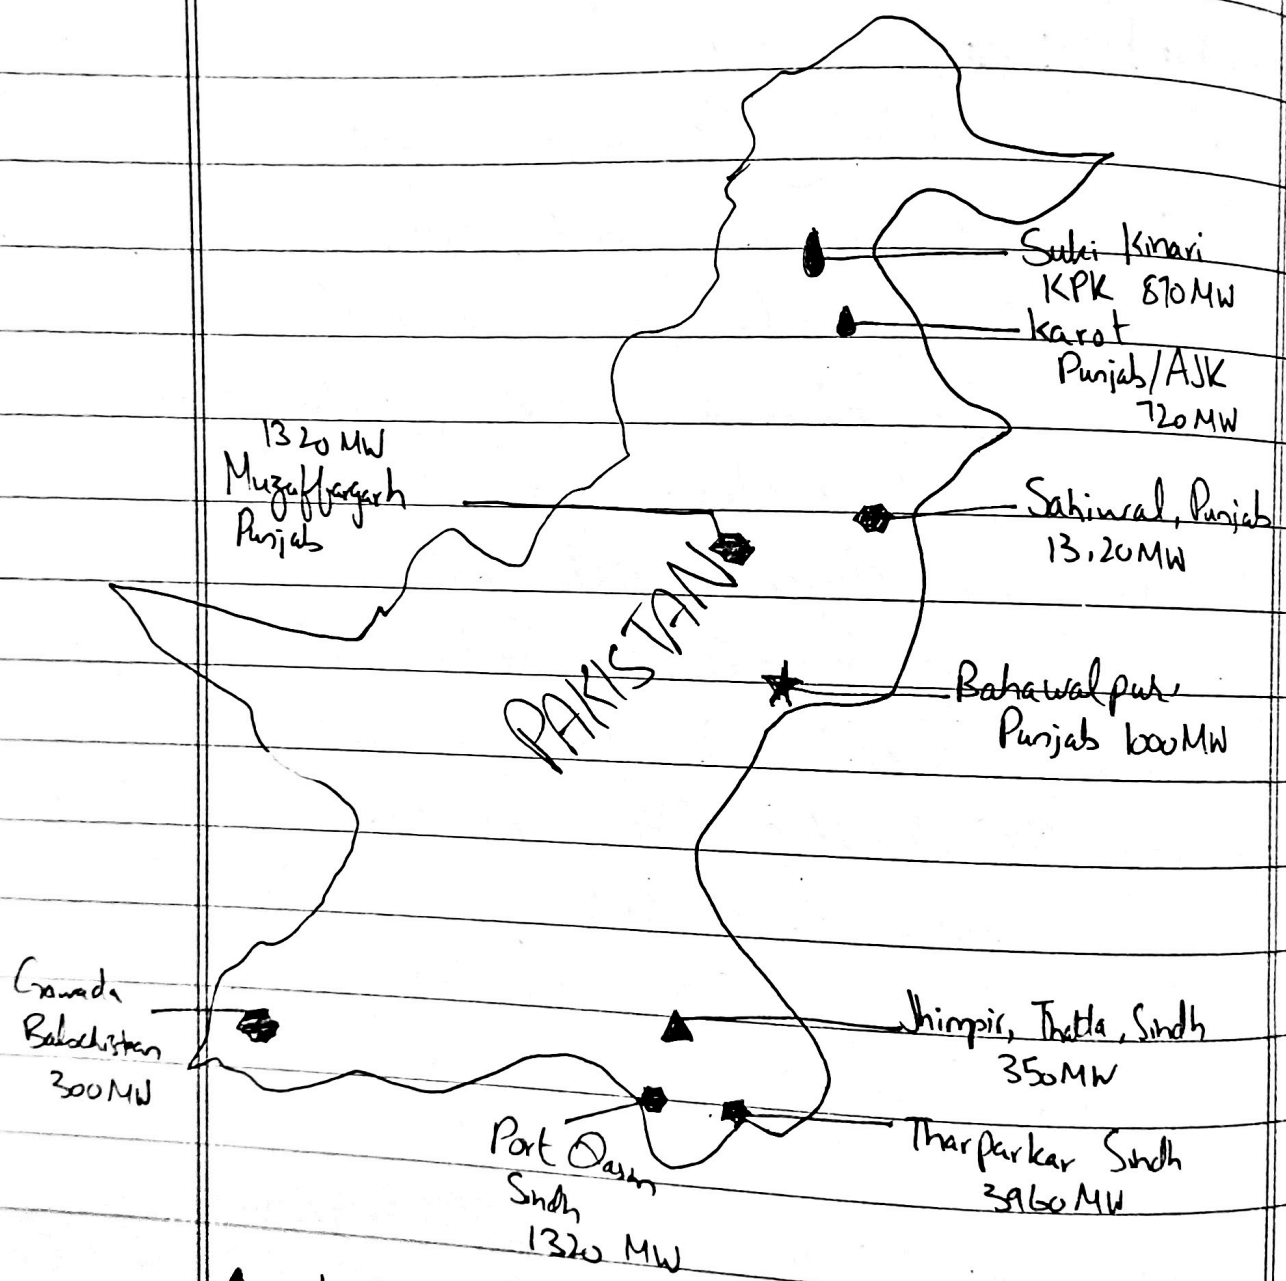 Suki Kinari
KPK 870MW
Karot
Punjab/AJK
720MW
1320 MW
Muzaffargarh
Punjab
Sahiwal, Punjab
13,20MW
PAKISTAN
Bahawalpur
Punjab 1000MW
Gawada
Balochistan
300MW
Jhimpir, Thatta, Sindh
350MW
Port Qasim
Sindh
1320 MW
Tharparkar Sindh
3960MW